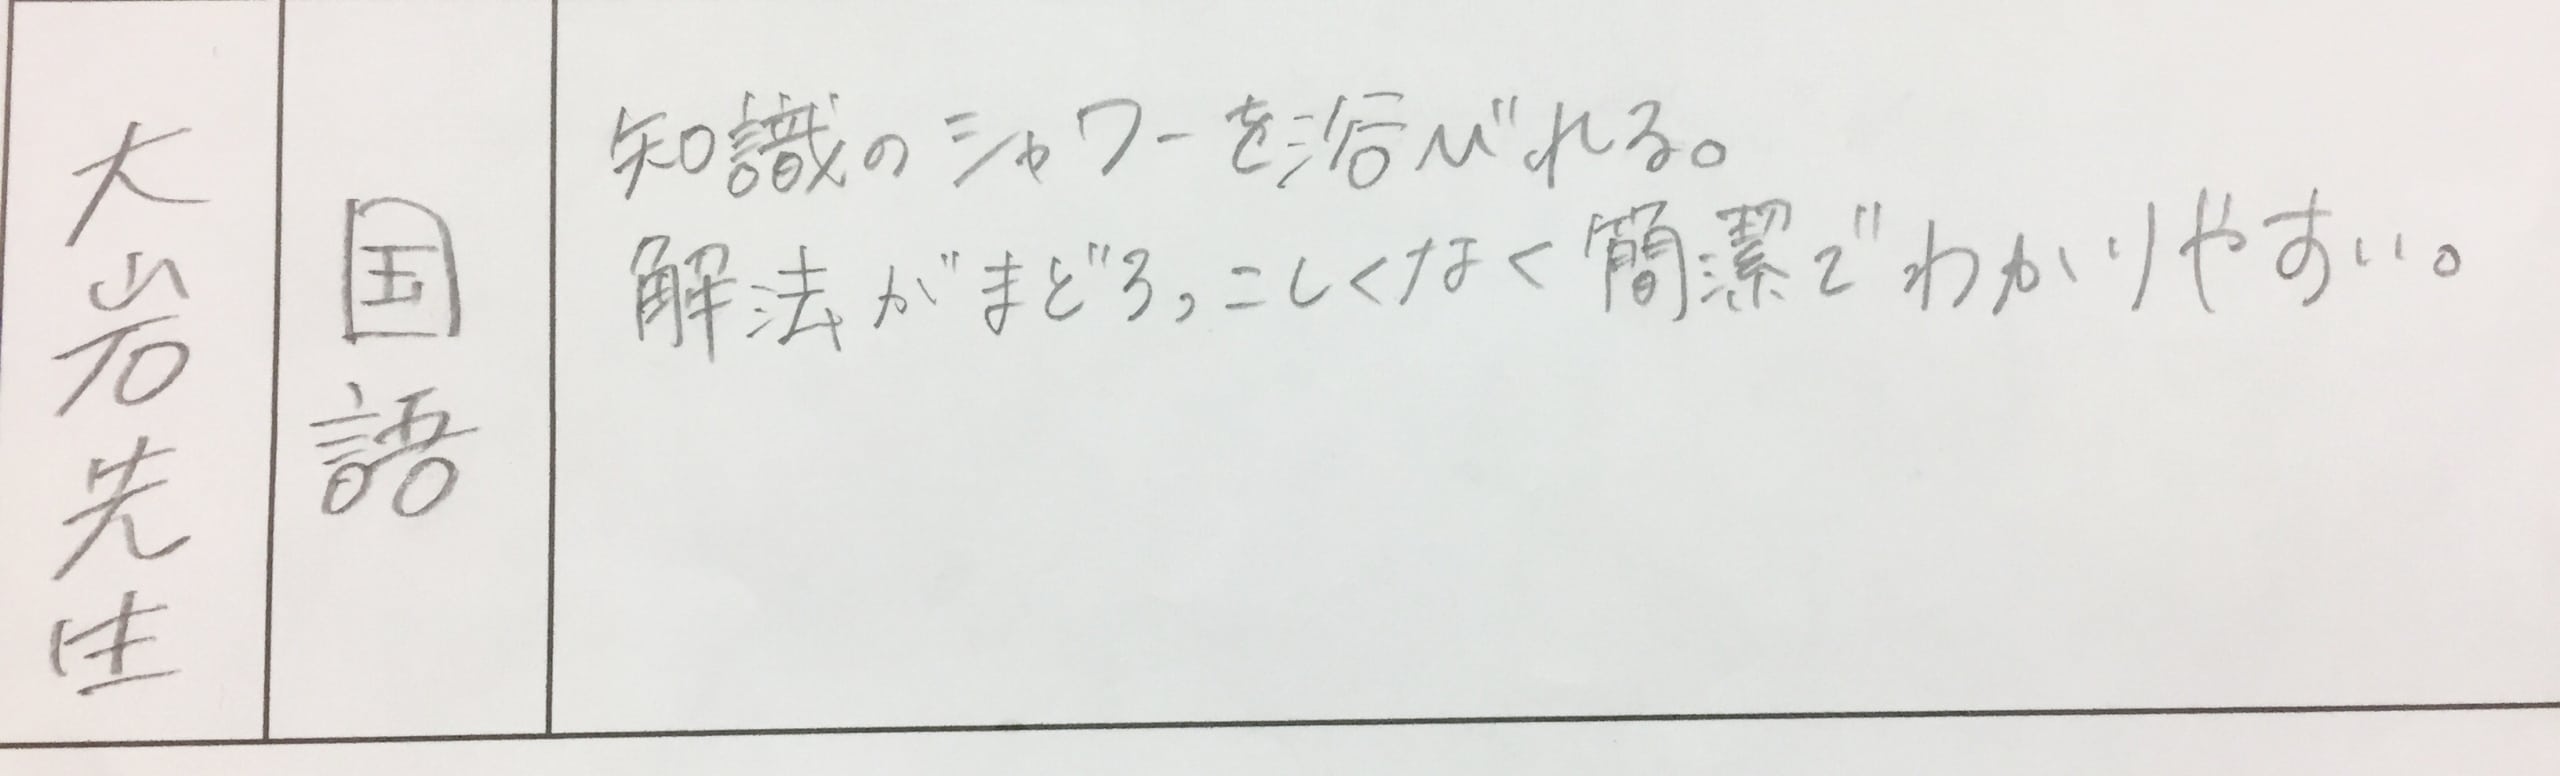 大岩先生
国語
知識のシャワーを浴びれる。
解法がまどろっこしくなく簡潔でわかりやすい。